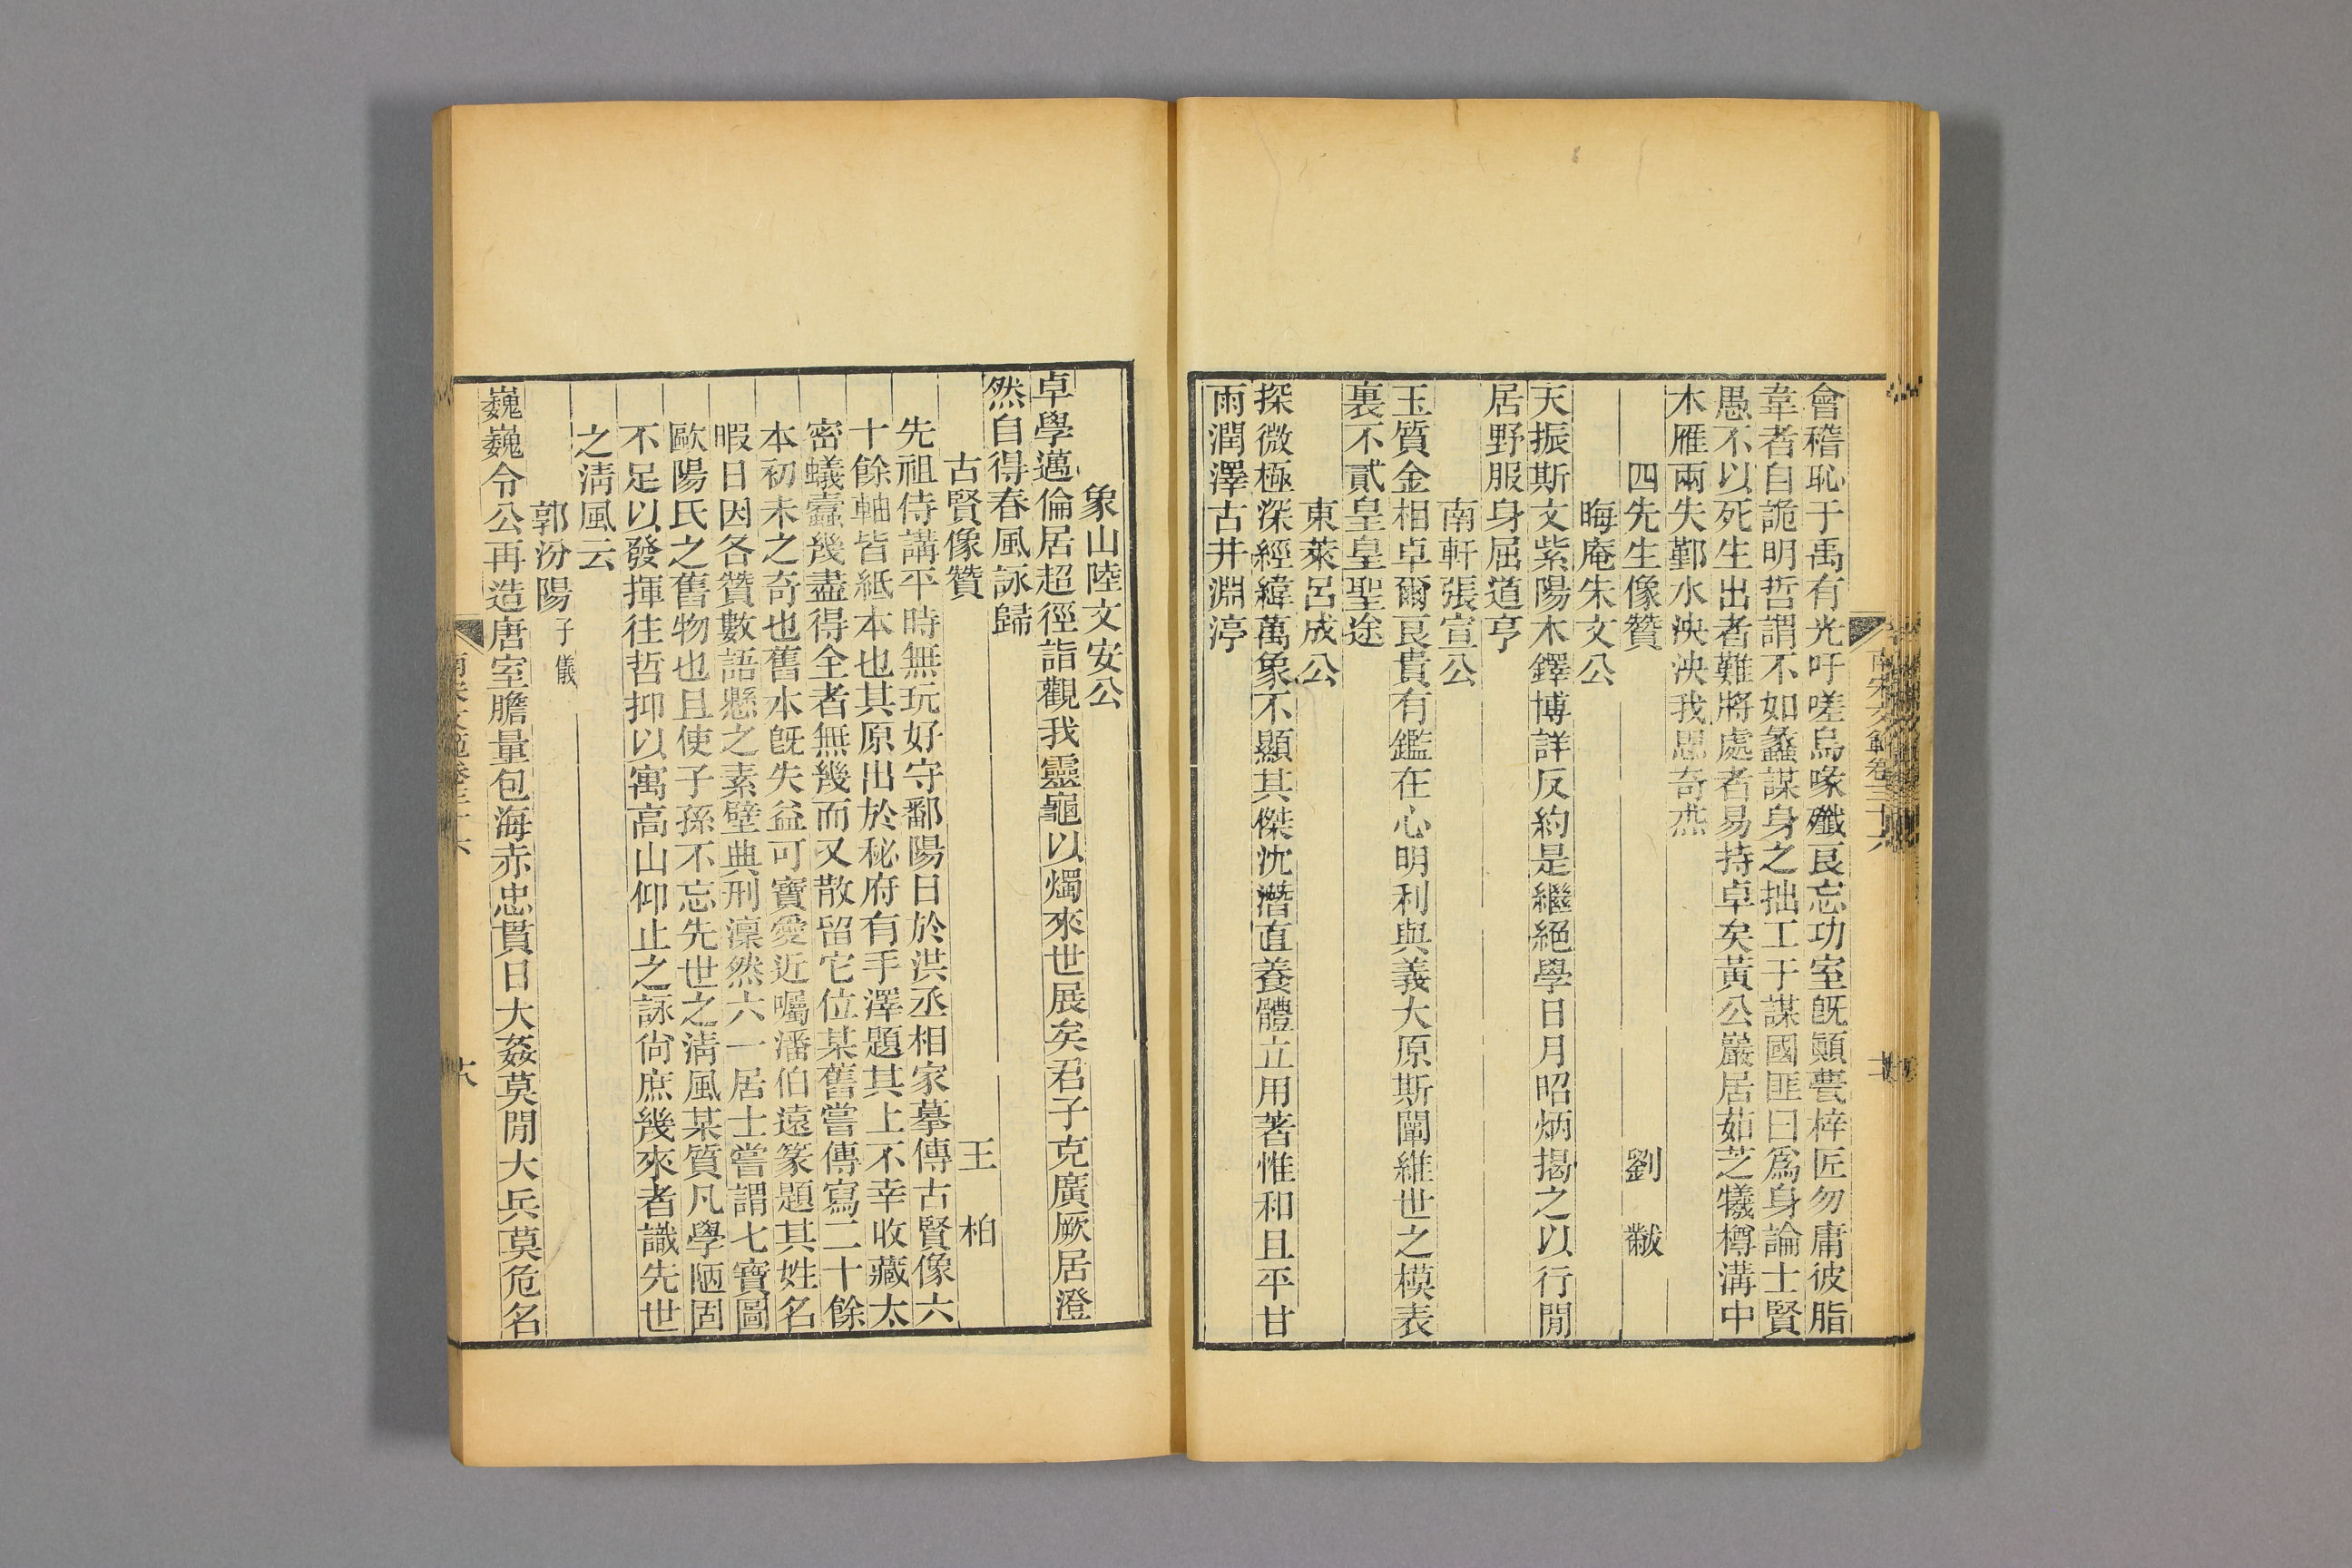 會稽恥于禹有光吁嗟烏喙殲良忘功室旣顚甍梓匠勿庸彼脂
韋者自詭明哲謂不如蠡謀身之拙工于謀國匪曰爲身論士賢
愚不以死生出者難將處者易持卓矣黃公巖居茹芝犧樽溝中
木雁兩失鄞水泱泱我思奇烝
四先生像贊 劉黻
晦庵朱文公
天振斯文紫陽木鐸博詳反約是繼絕學日月昭炳揭之以行閒
居野服身屈道亨
南軒張宣公
玉質金相卓爾良貴有鑑在心明利與義大原斯闡維世之模表
裏不貳皇皇聖途
東萊呂成公
探微極深經緯萬象不顯其傑沈潛直養體立用著惟和且平甘
雨潤澤古井淵渟
象山陸文安公
卓學邁倫居超徑詣觀我靈龜以燭來世展矣君子克廣厥居澄
然自得春風詠歸
古賢像贊 王柏
先祖侍講平時無玩好守鄱陽日於洪丞相家摹傳古賢像六
十餘軸皆紙本也其原出於秘府有手澤題其上不幸收藏太
密蟻蠹幾盡得全者無幾而又散留它位某舊嘗傳寫二十餘
本初未之奇也舊本旣失益可寶愛近囑潘伯遠篆題其姓名
暇日因各贊數語懸之素壁典刑凜然六一居士嘗謂七寶圖
歐陽氏之舊物也且使子孫不忘先世之淸風某質凡學陋固
不足以發揮往哲抑以寓高山仰止之詠尙庶幾來者識先世
之淸風云
郭汾陽子儀
巍巍令公再造唐室膽量包海赤忠貫日大姦莫閒大兵莫危名
南宋文範卷六十六
十八